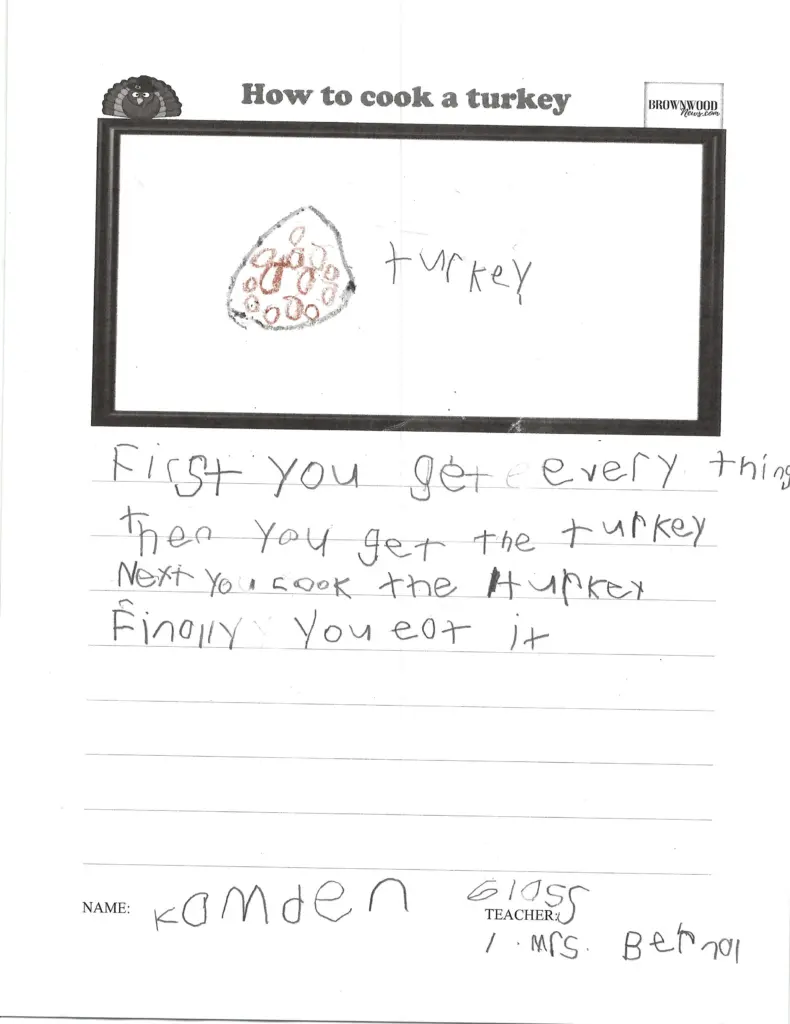 How to cook a turkey
BROWNWOOD
News.com
turkey
First you get every thing
then you get the turkey
Next you cook the turkey
Finally you eat it
NAME: Kamden Glass
TEACHER:
1. Mrs. Bernal